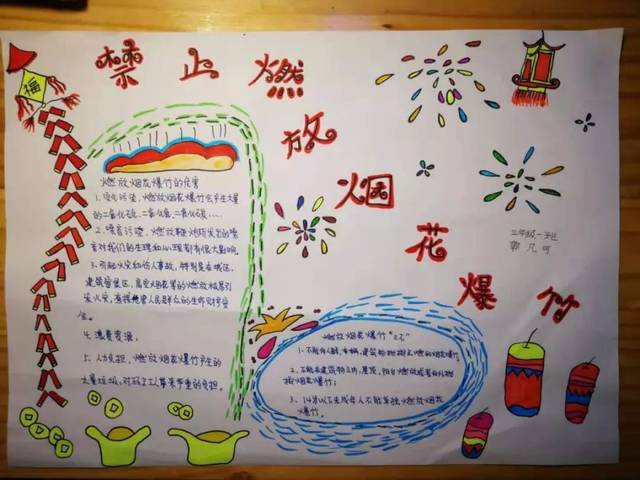 禁止燃放烟花爆竹
福
二年级一班
郭几可
燃放烟花爆竹的危害
1、空气污染,燃放烟花爆竹会产生大量
的二氧化硫、二氧化氮、二氧化碳……
2、噪音污染,燃放鞭炮所发出的噪
音对我们的生理和心理都有很大影响。
3、引起火灾和伤人事故,特别是在城区,
建筑密集区,高空烟花等的燃放极易引
发火灾,直接危害人民群众的生命财产安
全。
4、浪费资源,
5、人力负担,燃放烟花爆竹产生的
大量垃圾,对环卫工人带来严重的负担。
燃放烟花爆竹"三不"
1、不能向人群、车辆、建筑物抛掷点燃的烟花爆竹。
2、不能在建筑物工内、屋顶、阳台燃放或者向外抛
掷烟花爆竹;
3、14岁以下未成年人不能单独燃放烟花
爆竹。